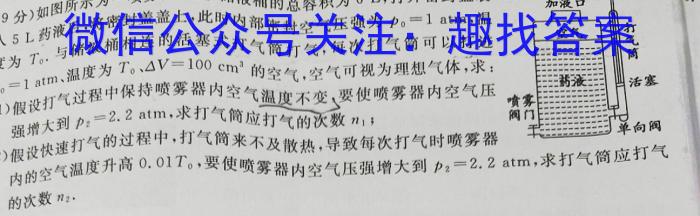 9分)如图所示
的总容积为
加液口
打
入5 L药液
密封盖盖
此时内部
压强为p₀=1 atm
微信公众号关注：趣找答案
度为T₀.
气筒
=1 atm、温度为T₀、ΔV=100 cm³的空气,空气可视为理想气体,求:
药液
活塞
)假设打气过程中保持喷雾器内空气温度不变,要使喷雾器内空气压
强增大到p₂=2.2 atm,求打气筒应打气的次数n₁;
喷雾
阀门
单向阀
)假设快速打气的过程中,打气筒来不及散热,导致每次打气时喷雾器
内的空气温度升高0.01T₀,要使喷雾器内空气压强增大到p₂=2.2 atm,求打气筒应打气
的次数n₂.